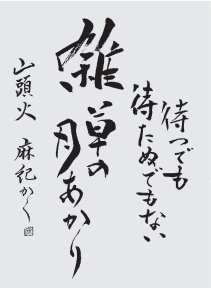 待つでも
待たぬでもない
雑草の
月あかり
山頭火 麻紀かく